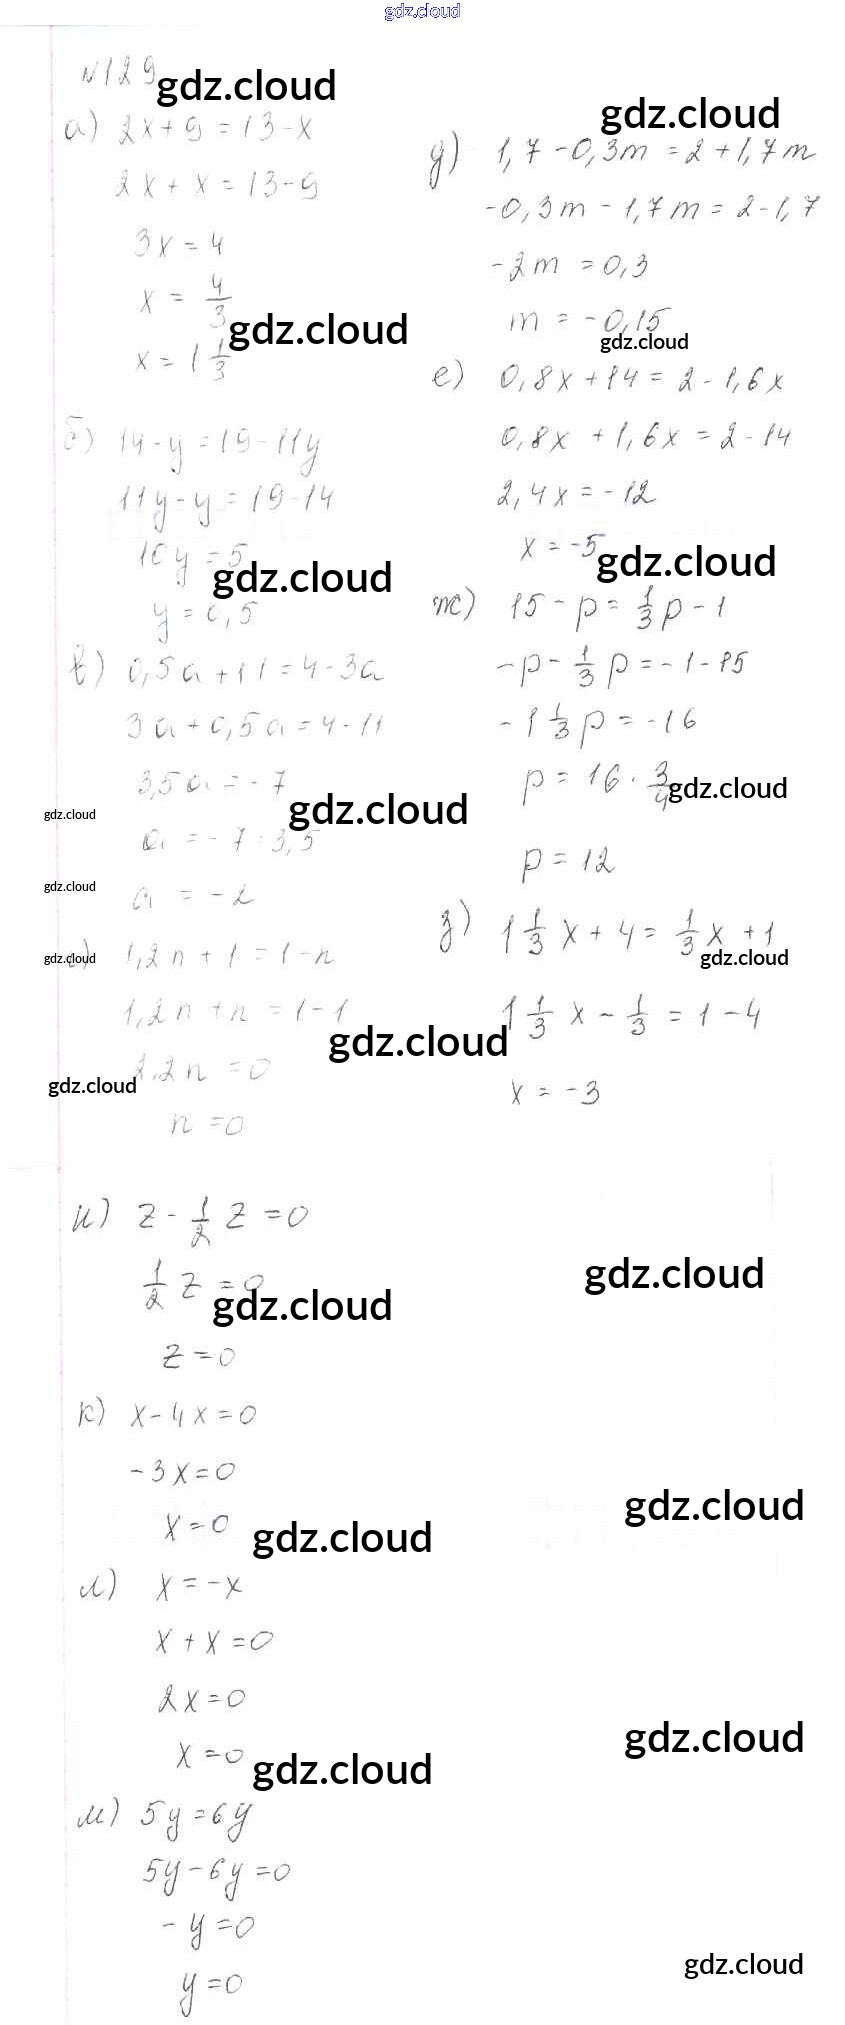 gdz.cloud
№129
gdz.cloud
а) 2x+9=13-x
2x+x=13-9
3x=4
x = 4/3
gdz.cloud
x = 1 1/3
б) 14-y=19-11y
11y-y=19-14
10y=5
gdz.cloud
y=0,5
в) 0,5a+11=4-3a
3a+0,5a=4-11
3,5a=-7
gdz.cloud
gdz.cloud
a=-7:3,5
gdz.cloud
a=-2
gdz.cloud
г) 1,2n+1=1-n
1,2n+n=1-1
gdz.cloud
2,2n=0
gdz.cloud
n=0
gdz.cloud
д) 1,7-0,3m=2+1,7m
-0,3m-1,7m=2-1,7
-2m=0,3
m=-0,15
gdz.cloud
е) 0,8x+14=2-1,6x
0,8x+1,6x=2-14
2,4x=-12
x=-5
gdz.cloud
ж) 15-p=1/3p-1
-p-1/3p=-1-15
-1 1/3p=-16
p=16·3/4
gdz.cloud
p=12
з) 1 1/3x+4=1/3x+1
gdz.cloud
1 1/3x-1/3=1-4
x=-3
и) z-1/2z=0
1/2z=0
gdz.cloud
gdz.cloud
z=0
к) x-4x=0
-3x=0
gdz.cloud
x=0
gdz.cloud
л) x=-x
x+x=0
2x=0
gdz.cloud
x=0
gdz.cloud
м) 5y=6y
5y-6y=0
-y=0
gdz.cloud
y=0